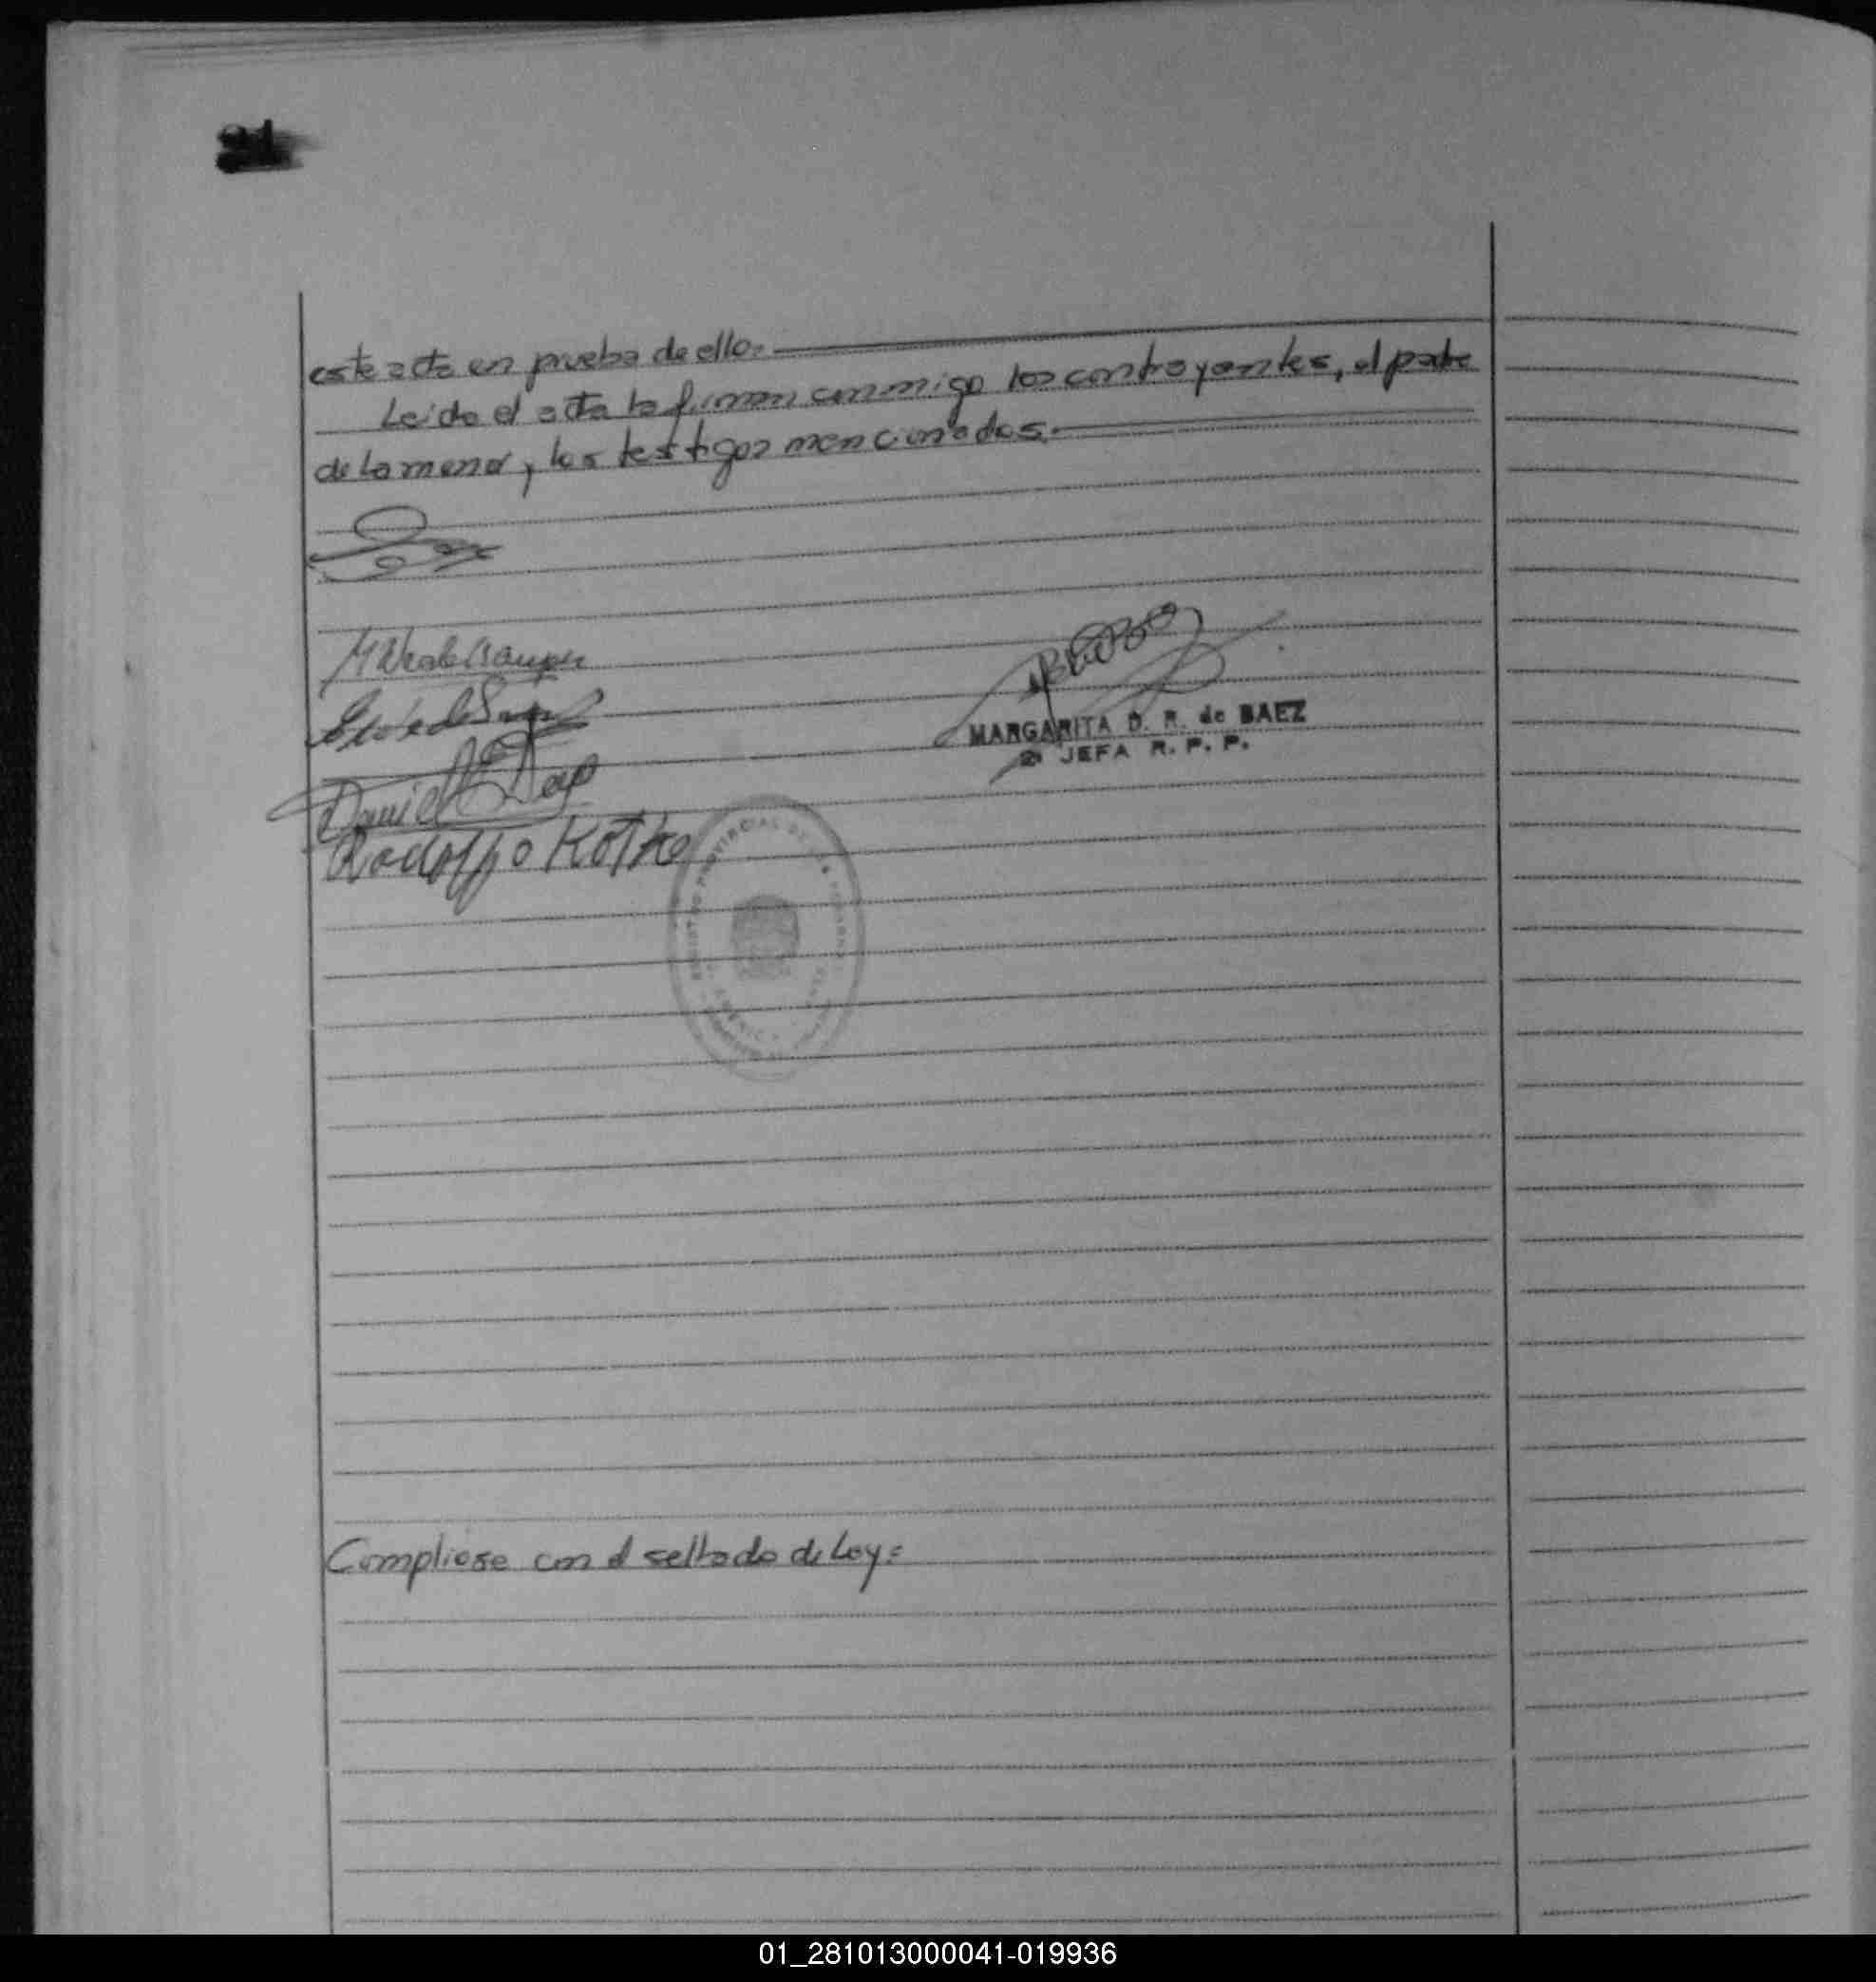 21
este acta en prueba de ello.
Leida el acta la firman conmigo los contrayentes, el padre
de la menor, y los testigos mencionados.
Daniel
Rodolfo Kotke
MARGARITA D. R. de BAEZ
JEFA R. P. P.
Cumpliose con el sellado de Ley=
01_281013000041-019936